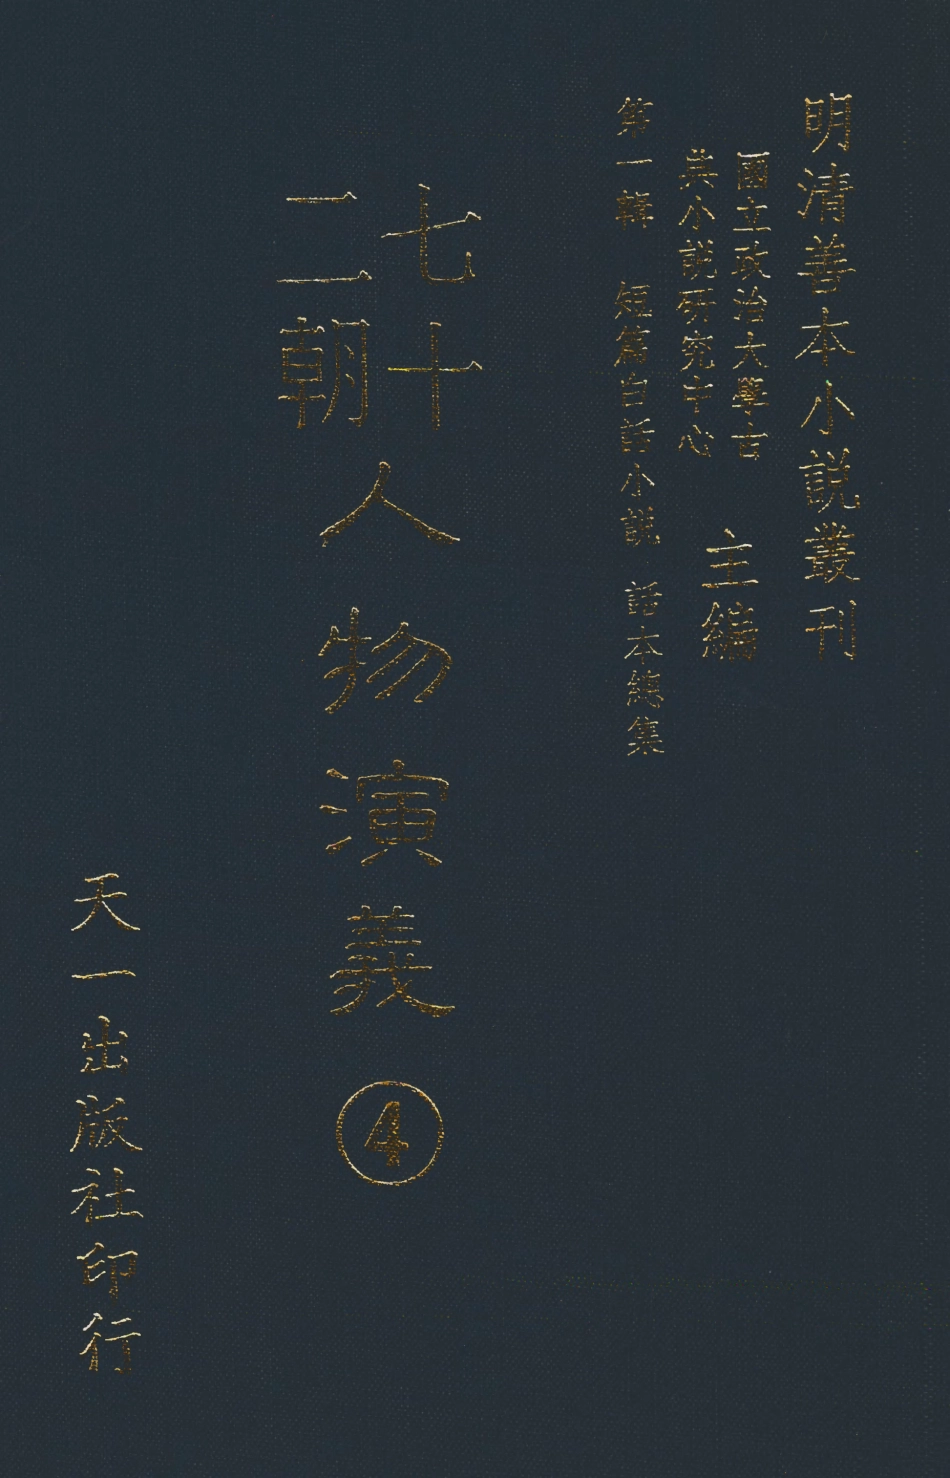 明清善本小説叢刊
國立政治大學古
典小説研究中心
主編
第一輯 短篇白話小説 話本總集
七十
二朝
人物演義
④
天一出版社印行